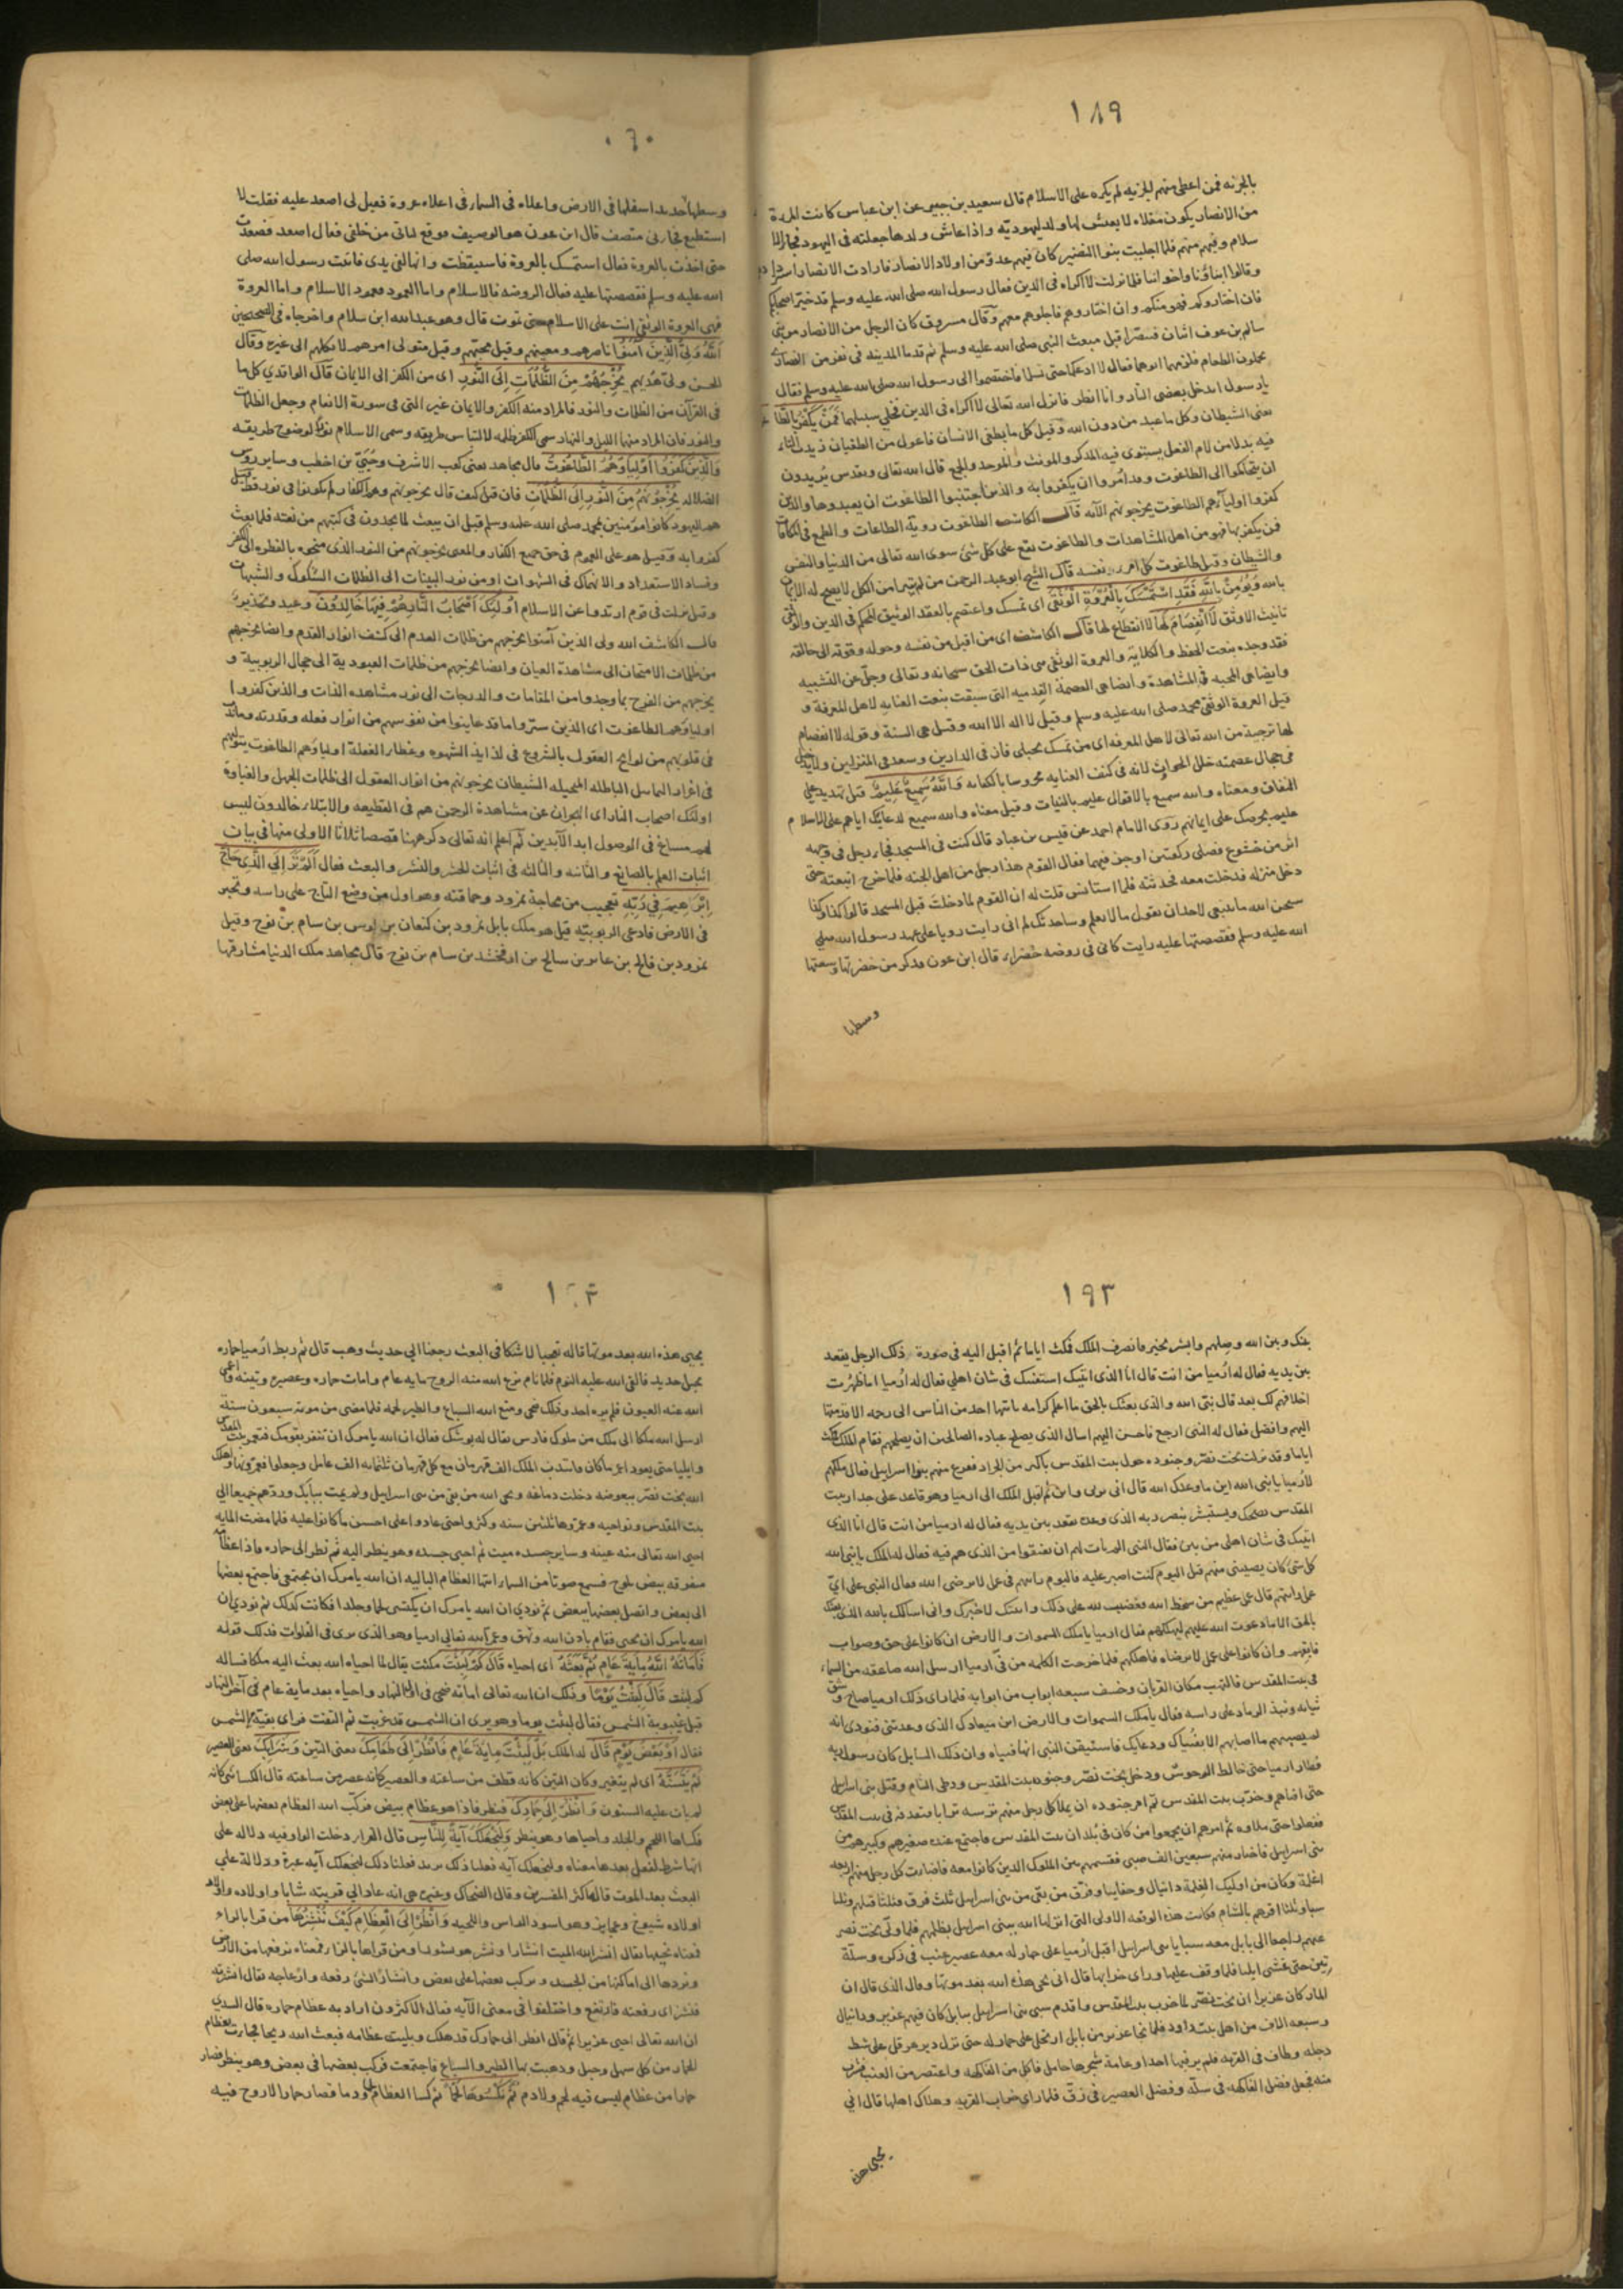 ١٨٩
بالجزية فمن اعطى منهم الجزيه لم يكره على الاسلام قال سعيد بن جبير عن ابن عباس كانت المرة
من الانصار يكون مقلاه لا يعيش لها ولد يهوديه واذا عاش ولدها جعلته فى اليهود فجاء الا
سلام وفيهم منهم فلما اجليت بنوا النضير كان فيهم عدة من اولاد الانصار فارادت الانصار
وقالوا ابناؤنا واخواننا فلما نزلت لا اكراه فى الدين فقال رسول الله صلى الله عليه وسلم قد خير اصحابكم
فان اختاروكم فهو منكم وان اختاروهم فاجلوهم معهم وقال مسروق كان الرجل من الانصار من بنى
سالم بن عوف ابنان فتنصرا قبل مبعث النبى صلى الله عليه وسلم ثم قدما المدينه فى نفر من النصارى
يحملون الطعام فلزمهما ابوهما فقال لا ادعكما حتى تسلما فاختصموا الى رسول الله صلى الله عليه وسلم فقال
يا رسول ايدخل بعضى النار وانا انظر فانزل الله تعالى لا اكراه فى الدين فخلى سبيلهما فَمَنْ يَكْفُرْ بِالطَّا
يعنى الشيطان وكل ما عبد من دون الله وقيل كل ما يطغى الانسان فاعول من الطغيان زيدت التاء
فيه بدلا من لام الفعل يستوى فيه المذكر والمونث والموحد والجمع قال الله تعالى وتقدس يريدون
ان يتحاكموا الى الطاغوت وقد امروا ان يكفروا به والذين اجتنبوا الطاغوت ان يعبدوها والذين
كفروا اوليآؤهم الطاغوت يخرجونهم الآيه قال الكاشف الطاغوت روية الطاعات والطمع فى المكافات
فمن يكفر بها فهو من اهل المشاهدات والطاغوت يقع على كل شئ سوى الله تعالى من الدنيا والنفس
والشيطان وقيل طاغوت كل امرء نفسه قال الشيخ ابو عبد الرحمن من لم يتبرا من الكل لا يصح له الايمان
بالله وَيُؤْمِنْ بِاللهِ فَقَدِ اسْتَمْسَكَ بِالْعُرْوَةِ الْوُثْقَى اى تمسك واعتصم بالعقد الوثيق المحكم فى الدين والوثقى
تانيث الاوثق لَا انْفِصَامَ لَهَا لا انقطاع لها قال الكاشف اى من اقبل من نفسه وحوله وقوته الى خالقه
فقد وجده بنعت الحفظ والكلايه والعروة الوثقى هى ذات الحق سبحانه وتعالى وجل عن التشبيه
وايضا هى المحبه فى المشاهدة وايضا هى العصمة القدميه التى سبقت بنعت العنايه لاهل المعرفة و
قيل العروة الوثقى محمد صلى الله عليه وسلم وقيل لا اله الا الله وقيل هى السنة وقوله لا انفصام
لها ترجية من الله تعالى لاهل المعرفه اى من تمسك بحبلى فان فى الدارين وسعد فى المنزلين ولا يدخل
فى جمال عصمته خلل الحوادث لانه فى كنف العنايه محروسا بالكفايه وَاللهُ سَمِيعٌ عَلِيمٌ قيل تهديد على
النفاق ومعناه والله سميع بالاقوال عليم بالنيات وقيل معناه والله سميع لدعايك اياهم على الاسلام
عليم بحرصك على ايمانهم روى الامام احمد عن قيس بن عباد قال كنت فى المسجد فجاء رجل فى وجهه
اثر من خشوع فصلى ركعتين اوجز فيهما فقال القوم هذا رجل من اهل الجنه فلما خرج اتبعته حتى
دخل منزله فدخلت معه فحدثته فلما استانس قلت له ان القوم لما دخلت قبل المسجد قالوا كذا وكذا
سبحن الله ما ينبغى لاحد ان يقول ما لا يعلم وساحدثك لم انى رايت رويا على عهد رسول الله صلى
الله عليه وسلم فقصصتها عليه رايت كانى فى روضه خضراء قال ابن عون فذكر من خضرتها وسعتها
وسطها
وسطها حديد اسفلها فى الارض واعلاه فى السماء فى اعلاه عروة فقيل لى اصعد عليه فقلت لا
استطيع فجاءنى منصف قال ابن عون هو الوصيف فوقع ثيابى من خلفى فقال اصعد فصعدت
حتى اخذت بالعروة فقال استمسك بالعروة فاستيقظت وانها لفى يدى فاتيت رسول الله صلى
الله عليه وسلم فقصصتها عليه فقال الروضه فالاسلام واما العمود فعمود الاسلام واما العروة
فهى العروة الوثقى انت على الاسلام حتى تموت قال وهو عبد الله ابن سلام واخرجاه فى الصحيحين
اَللهُ وَلِيُّ الَّذِينَ آمَنُوا ناصرهم ومعينهم وقيل محبهم وقيل متولى امرهم لا يكلهم الى غيره وقال
الحسن ولى هديهم يُخْرِجُهُمْ مِنَ الظُّلُمَاتِ اِلَى النُّورِ اى من الكفر الى الايمان قال الواقدي كل ما
فى القرآن من الظلمات والنور فالمراد منه الكفر والايمان غير التى فى سورة الانعام وجعل الظلمات
والنور فان المراد منها الليل والنهار سمى الكفر ظلمه لالتباس طريقه وسمى الاسلام نورا لوضوح طريقه
وَالَّذِينَ كَفَرُوا اَوْلِيَاؤُهُمُ الطَّاغُوتُ قال مجاهد يعنى كعب الاشرف وحيى بن اخطب وساير روس
الضلاله يُخْرِجُونَهُمْ مِنَ النُّورِ اِلَى الظُّلُمَاتِ فان قيل كيف قال يخرجونهم وهم الكفار لم يكونوا فى نور قط قيل
هم اليهود كانوا مؤمنين بمحمد صلى الله عليه وسلم قبل ان يبعث لما يجدون فى كتبهم من نعته فلما بعث
كفروا به وقيل هو على العموم فى حق جميع الكفار والمعنى يخرجونهم من النور الذى منحوه بالفطره الى الكفر
وفساد الاستعداد والانهماك فى الشهوات او من نور البينات الى الظلمات الشكوك والشبهات
وقيل نزلت فى قوم ارتدوا عن الاسلام اُولَئِكَ اَصْحَابُ النَّارِ هُمْ فِيهَا خَالِدُونَ وعيد وتحذير
قال الكاشف الله ولى الذين آمنوا يخرجهم من ظلمات العدم الى كشف انوار القدم وايضا يخرجهم
من ظلمات الامتحان الى مشاهدة العيان وايضا يخرجهم من ظلمات العبودية الى جمال الربوبية و
يخرجهم من الفرح بما وجدوا من المقامات والدرجات الى نور مشاهده الذات والذين كفروا
اولياؤهم الطاغوت اى الذين ستروا ما قد عاينوا من نفوسهم من انوار فعله وقدرته وما
فى قلوبهم من لوايح العقول بالشروع فى لذايذ الشهوه وغطار الغفلة اولياؤهم الطاغوت يتولهم
فى اغراء الباطله المخيله الشيطان يخرجونهم من انوار العقول الى ظلمات الجهل والغباوة
اولئك اصحاب النار اى النيران عن مشاهدة الرحمن هم فى القطيعه والابتلاء خالدون ليس
لهم مساغ فى الوصول ابد الآبدين ثم اعلم انه تعالى ذكر ههنا قصصا ثلاثا الاولى منها فى بيان
اثبات العلم بالصانع والثانيه والثالثه فى اثبات الحشر والنشر والبعث فقال اَلَمْ تَرَ اِلَى الَّذِى حَاجَّ
اِبْرَاهِيمَ فِي رَبِّهِ تعجيب من محاجة نمرود وحماقته وهو اول من وضع التاج على راسه وتجبر
فى الارض فادعى الربوبيه قيل هو ملك بابل نمرود بن كنعان بن كوس بن سام بن نوح وقيل
نمرود بن فالح بن عابر بن سالح بن ارفخشد بن سام بن نوح قال مجاهد ملك الدنيا مشارقها
١٩٣
بينك وبين الله وصلهم وابشر بخير فانصرف الملك فمكث اياما ثم اقبل اليه فى صورة ذلك الرجل فقعد
بين يديه فقال له ارميا من انت قال انا الذى اتيتك استفتيك فى شان اهلى فقال له ارميا اما طهرت
اخلاقهم لك بعد قال نبى الله والذى بعثك بالحق ما اعلم كرامه ياتيها احد من الناس الى رحمه الا قدمتها
اليهم وافضل فقال له النبى ارجع فاحسن اليهم اسال الذى يصلح عباده الصالحين ان يصلحهم فقام الملك فمكث
اياما وقد نزلت بخت نصر وجنوده حول بيت المقدس باكثر من الجراد ففزع منهم بنوا اسراييل فقال ملكهم
لارميا يا نبى الله اين ما وعدك الله قال انى بربى واثق ثم اقبل الملك الى ارميا وهو قاعد على جدار بيت
المقدس يضحك ويستبشر بنصر ربه الذى وعده فقعد بين يديه فقال له ارميا من انت قال انا الذى
اتيتك فى شان اهلى مرتين فقال النبى الم يان لهم ان يفيقوا من الذى هم فيه فقال له الملك يا نبى الله
كل شئ كان يصيبنى منهم قبل اليوم كنت اصبر عليه فاليوم رايتهم فى عمل لا يرضى الله فقال النبى على اى
عمل رايتهم قال عمل عظيم من سخط الله فغضبت لله على ذلك واتيتك لاخبرك وانى اسالك بالله الذى بعثك
بالحق الا ما دعوت الله عليهم ليهلكهم فقال ارميا يا ملك السموات والارض ان كانوا على حق وصواب
فابقهم وان كانوا على عمل لا ترضاه فاهلكهم فلما خرجت الكلمه من فى ارميا ارسل الله صاعقه من السماء
فى بيت المقدس فالتهب مكان القربان وخسف سبعه ابواب من ابوابه فلما راى ذلك ارميا صاح وشق
ثيابه ونبذ الرماد على راسه فقال يا ملك السموات والارض اين ميعادك الذى وعدتنى فنودى انه
لم يصبهم ما اصابهم الا بفتياك ودعايك فاستيقن النبى انها فتياه وان ذلك السايل كان رسول ربه
فطار ارميا حتى خالط الوحوش ودخل بخت نصر وجنوده بيت المقدس ووطى الشام وقتل بنى اسرايل
حتى افناهم وخرب بيت المقدس ثم امر جنوده ان يملا كل رجل منهم ترسه ترابا فيقذفه فى بيت المقدس
ففعلوا حتى ملاوه ثم امرهم ان يجمعوا من كان فى بلدان بيت المقدس فاجتمع عنده صغيرهم وكبيرهم من
بنى اسرايل فاختار منهم سبعين الف صبى فقسمهم بين الملوك الذين كانوا معه فاصابت كل رجل منهم اربعه
اغلمة وكان من اوليك الغلمة دانيال وحنانيا وفرق من بقى من بنى اسرايل ثلث فرق فثلثا قتلهم وثلثا
سبا وثلثا اقرهم بالشام فكانت هذه الوقعه الاولى التى انزلها الله ببنى اسرايل بظلمهم فلما ولى بخت نصر
عنهم راجعا الى بابل معه سبايا بنى اسرايل اقبل ارميا على حمار له معه عصير عنب فى ذكوه وسلة
تين حتى غشى ايليا فلما وقف عليها وراى خرابها قال انى يحيى هذه الله بعد موتها وقال الذى قال ان
المار كان عزيرا ان بخت نصر لما خرب بيت المقدس واقدم سبى بنى اسراييل ببابل كان فيهم عزير ودانيال
وسبعه الاف من اهل بيت داود فلما نجا عزير من بابل ارتحل على حمار له حتى نزل دير هرقل على شط
دجله وطاف فى القريه فلم ير فيها احدا وعامة شجرها حامل فاكل من الفاكهه واعتصر من العنب فشرب
منه فجعل فضل الفاكهه فى سله وفضل العصير فى زق فلما راى خراب القريه وهلاك اهلها قال انى
يحيى هذه
يحيى هذه الله بعد موتها قاله تعجبا لا شكا فى البعث رجعنا الى حديث وهب قال ثم ربط ارميا حماره
بحبل جديد فالقى الله عليه النوم فلما نام نزع الله منه الروح مايه عام وامات حماره وعصيره وتينه واعمى
الله عنه العيون فلم يره احد وذلك ضحى ومنع الله السباع والطير لحمه فلما مضى من موته سبعون سنة
ارسل الله ملكا الى ملك من ملوك فارس يقال له بوشك فقال ان الله يامرك ان تنفر بقومك فتعمر بيت المقدس
وايليا حتى يعود اعمر ما كان فانتدب الملك الف قهرمان مع كل قهرمان ثلثمايه الف عامل وجعلوا يعمرونها واهلك
الله بخت نصر ببعوضه دخلت دماغه ونجى الله من بقى من بنى اسراييل ولم يمت ببابل وردهم جميعا الى
بيت المقدس ونواحيه وعمروها ثلثين سنه وكثروا حتى عادوا على احسن ما كانوا عليه فلما مضت المايه
احيى الله تعالى منه عينه وساير جسده ميت ثم احيى جسده وهو ينظر اليه ثم نظر الى حماره فاذا عظامه
متفرقه بيض تلوح فسمع صوتا من السماء ايتها العظام الباليه ان الله يامرك ان تجتمعى فاجتمع بعضها
الى بعض واتصل بعضها ببعض ثم نودى ان الله يامرك ان يكتسى لحما وجلدا فكانت كذلك ثم نودي ان
الله يامرك ان تحيى فقام باذن الله ونهق وعمر الله تعالى ارميا وهو الذى يرى فى الفلوات فذلك قوله
فَاَمَاتَهُ اللهُ مِايَةَ عَامٍ ثُمَّ بَعَثَهُ اى احياه قَالَ كَمْ لَبِثْتَ مكثت يقال لما احياه الله بعث اليه ملكا فساله
كم لبثت قَالَ لَبِثْتُ يَوْمًا وذلك ان الله تعالى اماته ضحى فى اول النهار واحياه بعد ماية عام فى آخر النهار
قبل غيبوبة الشمس فقال لبثت يوما وهو يرى ان الشمس قد غربت ثم التفت فراى بقية من الشمس
فقال اَوْ بَعْضَ يَوْمٍ قَالَ له الملك بَلْ لَبِثْتَ مِايَةَ عَامٍ فَانْظُرْ اِلَى طَعَامِكَ يعنى التين وَشَرَابِكَ يعنى العصير
لَمْ يَتَسَنَّهْ اى لم يتغير وكان التين كانه قطف من ساعته والعصير كانه عصر من ساعته قال الكسائى كانه
لم يات عليه السنون وَانْظُرْ اِلَى حِمَارِكَ فنظر فاذا هو عظام بيض فركب الله العظام بعضها على بعض
فكساها اللحم والجلد واحياها وهو ينظر وَلِنَجْعَلَكَ آيَةً لِلنَّاسِ قال الفراء دخلت الواو فيه دلاله على
انها شرط لفعل بعدها معناه ولنجعلك آيه فعلنا ذلك يريد فعلنا ذلك لنجعلك آيه عبرة ودلالة على
البعث بعد الموت قاله اكثر المفسرين وقال الضحاك وغيره هى انه عاد الى قريته شابا واولاده واولاد
اولاده شيوخ وعجايز وهو اسود الراس واللحيه وَانْظُرْ اِلَى الْعِظَامِ كَيْفَ نُنْشِزُهَا من قرا بالراء
فمعناه نحييها يقال انشر الله الميت انشارا ونشر هو نشورا ومن قراها بالزا فمعناه نرفعها من الارض
ونردها الى اماكنها من الجسد ونركب بعضها على بعض وانشاز الشئ رفعه وازعاجه يقال انشزته
فنشز اى رفعته فارتفع واختلفوا فى معنى الآيه فقال الاكثرون اراد به عظام حماره قال السدى
ان الله تعالى احيى عزيرا ثم قال انظر الى حمارك قد هلك وبليت عظامه فبعث الله ريحا فجاءت بعظام
الحمار من كل سهل وجبل وذهبت بها الطير والسباع فاجتمعت فركب بعضها فى بعض وهو ينظر فصار
حمارا من عظام ليس فيه لحم ولا دم ثُمَّ نَكْسُوهَا لَحْمًا ثم كسا العظام لحما ودما فصار حمارا لا روح فيه